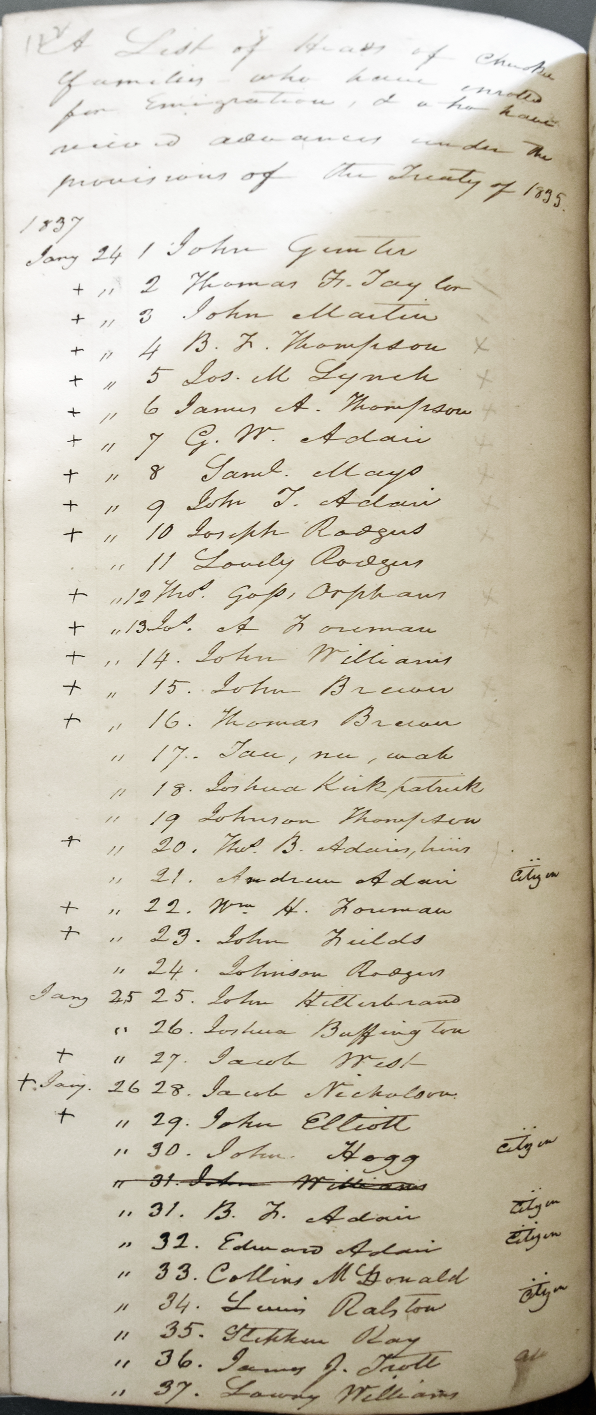 A List of Heads of Cherokee
families who have enrolled
for Emigration, & who have
received advances under the
provisions of the Treaty of 1835.
1837
Jany 24 1 John Gunter
+ " 2 Thomas F. Taylor
+ " 3 John Martin
+ " 4 B. F. Thompson x
+ " 5 Jos. M Lynch x
+ " 6 James A. Thompson x
+ " 7 G. W. Adair x
+ " 8 Saml. Mays x
+ " 9 John T. Adair x
+ " 10 Joseph Rodgers x
" 11 Lovely Rodgers
+ " 12 Thos. Goss, Orphans x
+ " 13 Jos. A Foreman x
+ " 14. John Williams
+ " 15. John Brewer x
+ " 16. Thomas Brewer x
" 17. Tau, nu, wah
" 18. Joshua Kirkpatrick
" 19 Johnson Thompson
+ " 20. Thos. B. Adairs, heirs
" 21. Andrew Adair Citizen
+ " 22. Wm H. Foreman
+ " 23. John Fields
" 24. Johnson Rodgers
Jany 25 25. John Hilterbrand
" 26. Joshua Buffington
+ " 27. Jacob West
+ Jany. 26 28. Jacob Nicholson
+ " 29. John Elliott
" 30. John Hogg Citizen
" 31. John Williams
" 31. B. F. Adair Citizen
" 32. Edward Adair Citizen
" 33. Collins McDonald
" 34. Lewis Ralston Citizen
" 35. Stephen Ray
" 36. James J. Trott
" 37. Lowry Williams